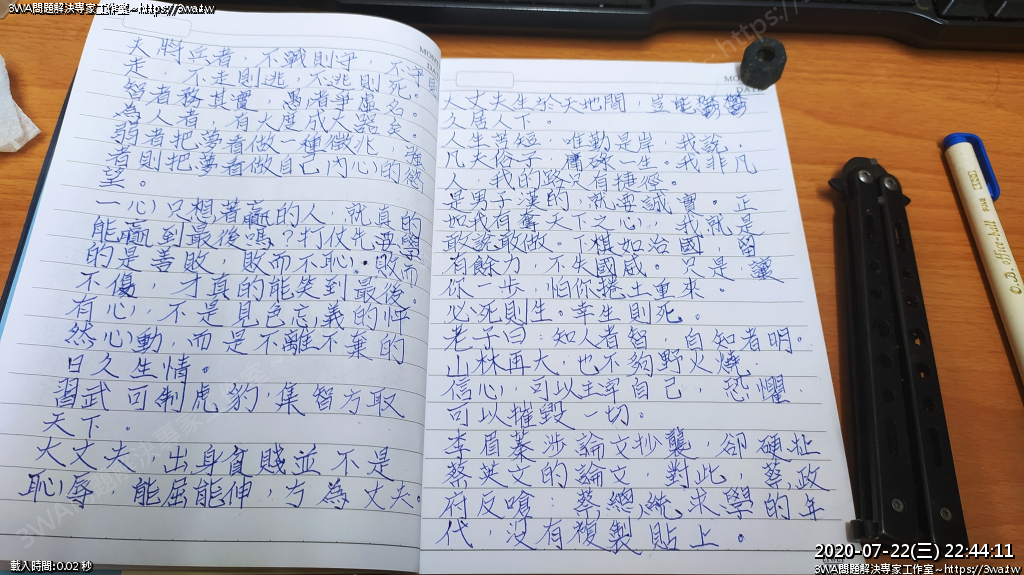 3WA問題解決專家工作室~https://3wa.tw
3WA問題解決專家工作室~https://3wa.tw
夫將兵者，不戰則守，不守則
走，不走則逃，不逃則死。
智者務其實，愚者爭虛名。
為人者，有大度成大器矣。
弱者把夢看做一種徵兆，強
者則把夢看做自己內心的慾
望。
一心只想著贏的人，就真的
能贏到最後嗎？打仗先要學
的是善敗，敗而不恥，敗而
不傷，才真的能笑到最後。
有心，不是見色忘義的怦
然心動，而是不離不棄的
日久生情。
習武可制虎豹，集智方取
天下。
大丈夫，出身貧賤並不是
恥辱，能屈能伸，方為丈夫。
MO
DATE
大丈夫生於天地間，豈能鬱鬱
久居人下。
人生苦短，唯勤是岸，我說，
凡夫俗子，庸碌一生。我非凡
人，我的路只有捷徑。
是男子漢的，就要誠實。正
如我有奪天下之心，我就是
敢說敢做。下棋如治國，留
有餘力，不失國威。只是，讓
你一步，怕你捲土重來。
必死則生。幸生則死。
老子曰：知人者智，自知者明。
山林再大，也不夠野火燒，
信心，可以主宰自己，恐懼，
可以摧毀一切。
李眉蓁涉論文抄襲，卻硬扯
蔡英文的論文，對此，蔡政
府反嗆：蔡總統求學的年
代，沒有複製貼上。
O.B. office-ball
FINE
2020-07-22(三) 22:44:11
載入時間:0.02 秒
3WA問題解決專家工作室~https://3wa.tw